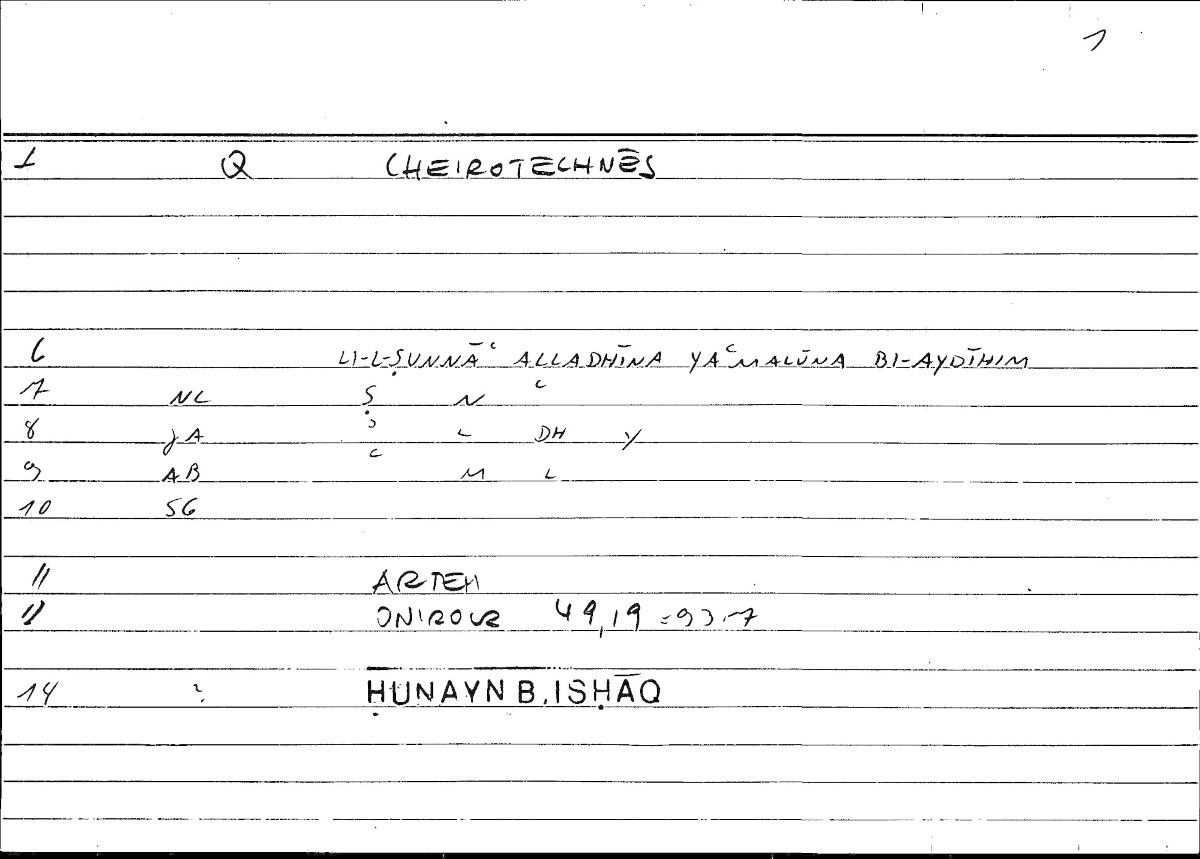 1
1 Q CHEIROTECHNĒS
6 LI-L-ṢUNNĀʿ ALLADHĪNA YAʿMALŪNA BI-AYDĪHIM
7 NL Ṣ N ʿ
8 JA ʾ L DH Y
9 AB ʿ M L
10 SG
11 ARTEM
ONIROCR 49,19 = 93.7
14 ḤUNAYN B. ISḤĀQ